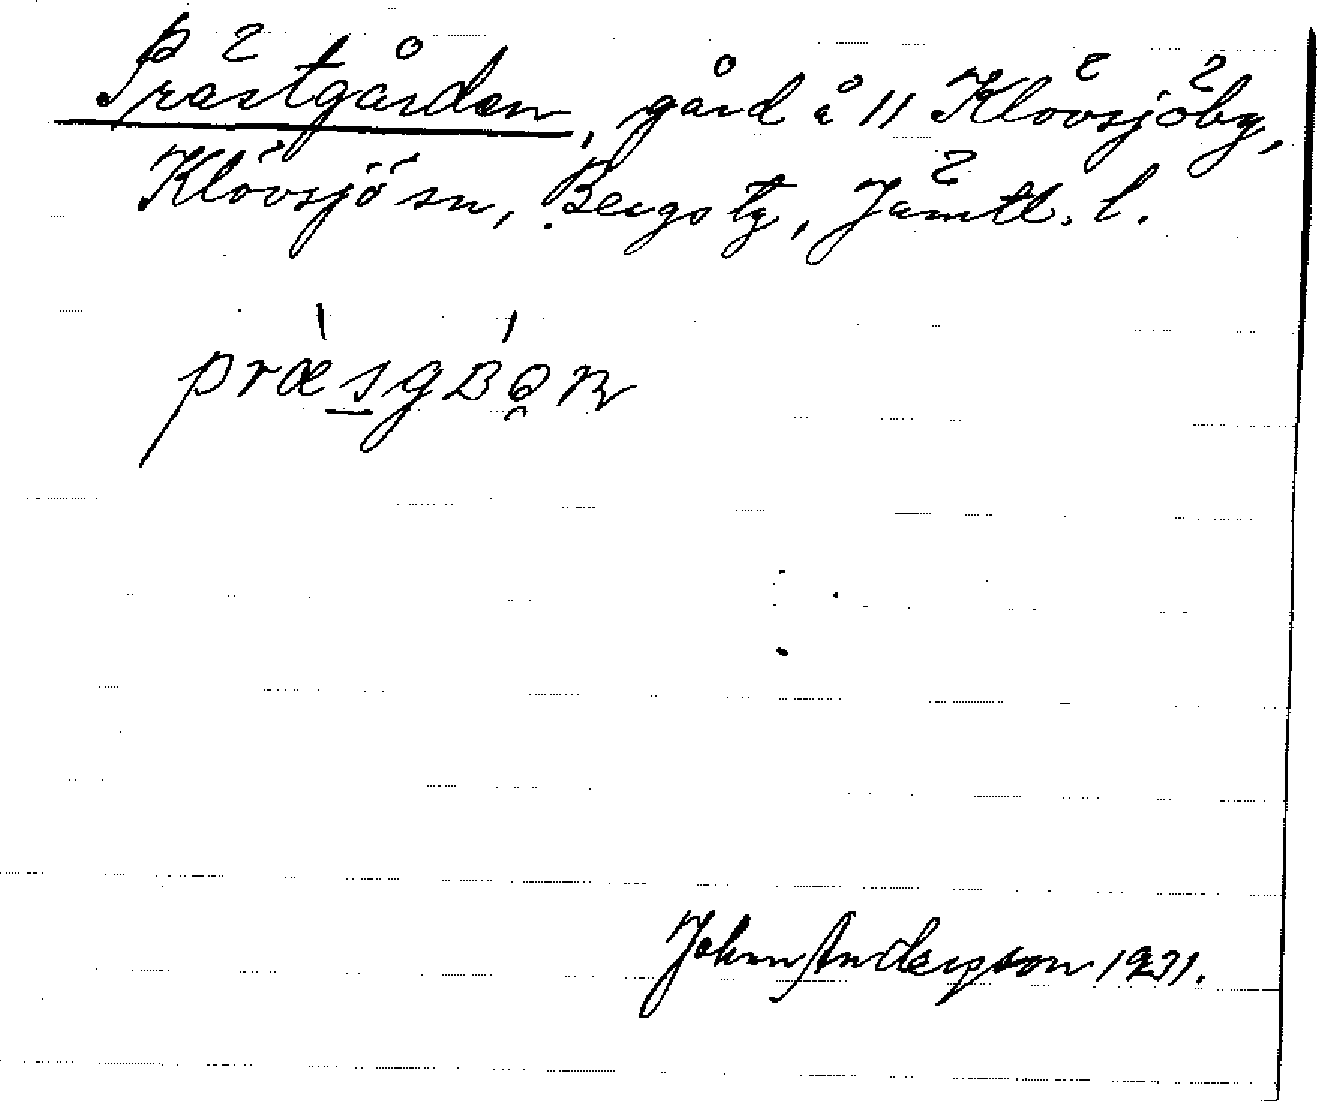 Prästgården, gård å 11 Klövsjöby,
Klövsjö sn, Bergs tg, Jämtl. l.
præsgʙən
John Andersson 1931.